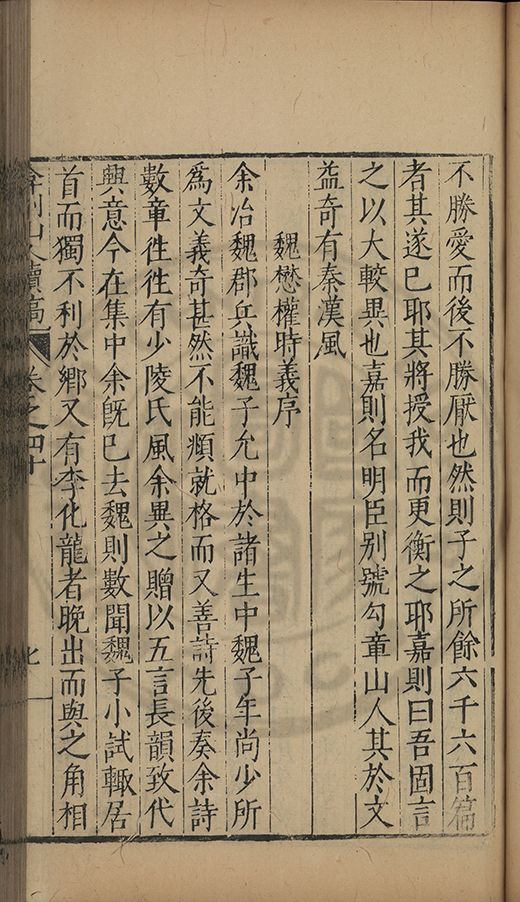 不勝愛而後不勝厭也然則子之所餘六千六百篇
者其遂已耶其將授我而更衡之耶嘉則曰吾固言
之以大較異也嘉則名明臣别號勾章山人其於文
益奇有秦漢風
魏懋權時義序
余冶魏郡兵識魏子允中於諸生中魏子年尚少所
爲文義奇甚然不能頫就格而又善詩先後奏余詩
數章徃徃有少陵氏風余異之贈以五言長韻致代
興意今在集中余旣巳去魏則數聞魏子小試輙居
首而獨不利於鄉又有李化龍者晚出而與之角相
弇州山人續稿 卷之四十